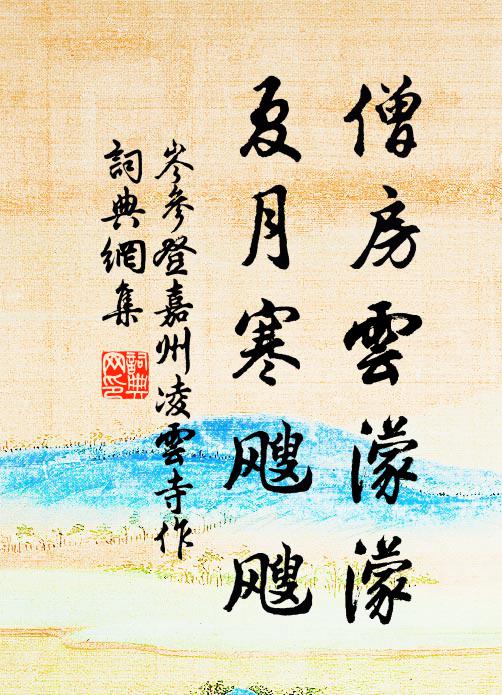 僧房雲濛濛
夏月寒飕飕
岑參登嘉州凌雲寺作
詞典網集
詞典网印